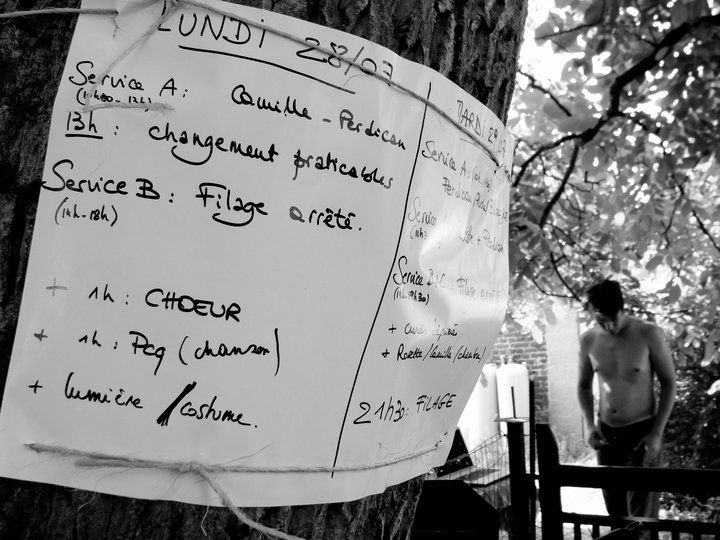 LUNDI 28/07
Service A: Camille - Perdican
13h : changement praticables
Service B : Filage arrêté.
(14h-18h)
+ 1h : CHOEUR
+ 1h : Pcq (chanson)
+ lumière / costume.
MARDI 29/07
Service A:
Perdican
Service
+ Perdican
Service Filage arrêté
+
+ Rosette / Camille /
21h30: FILAGE